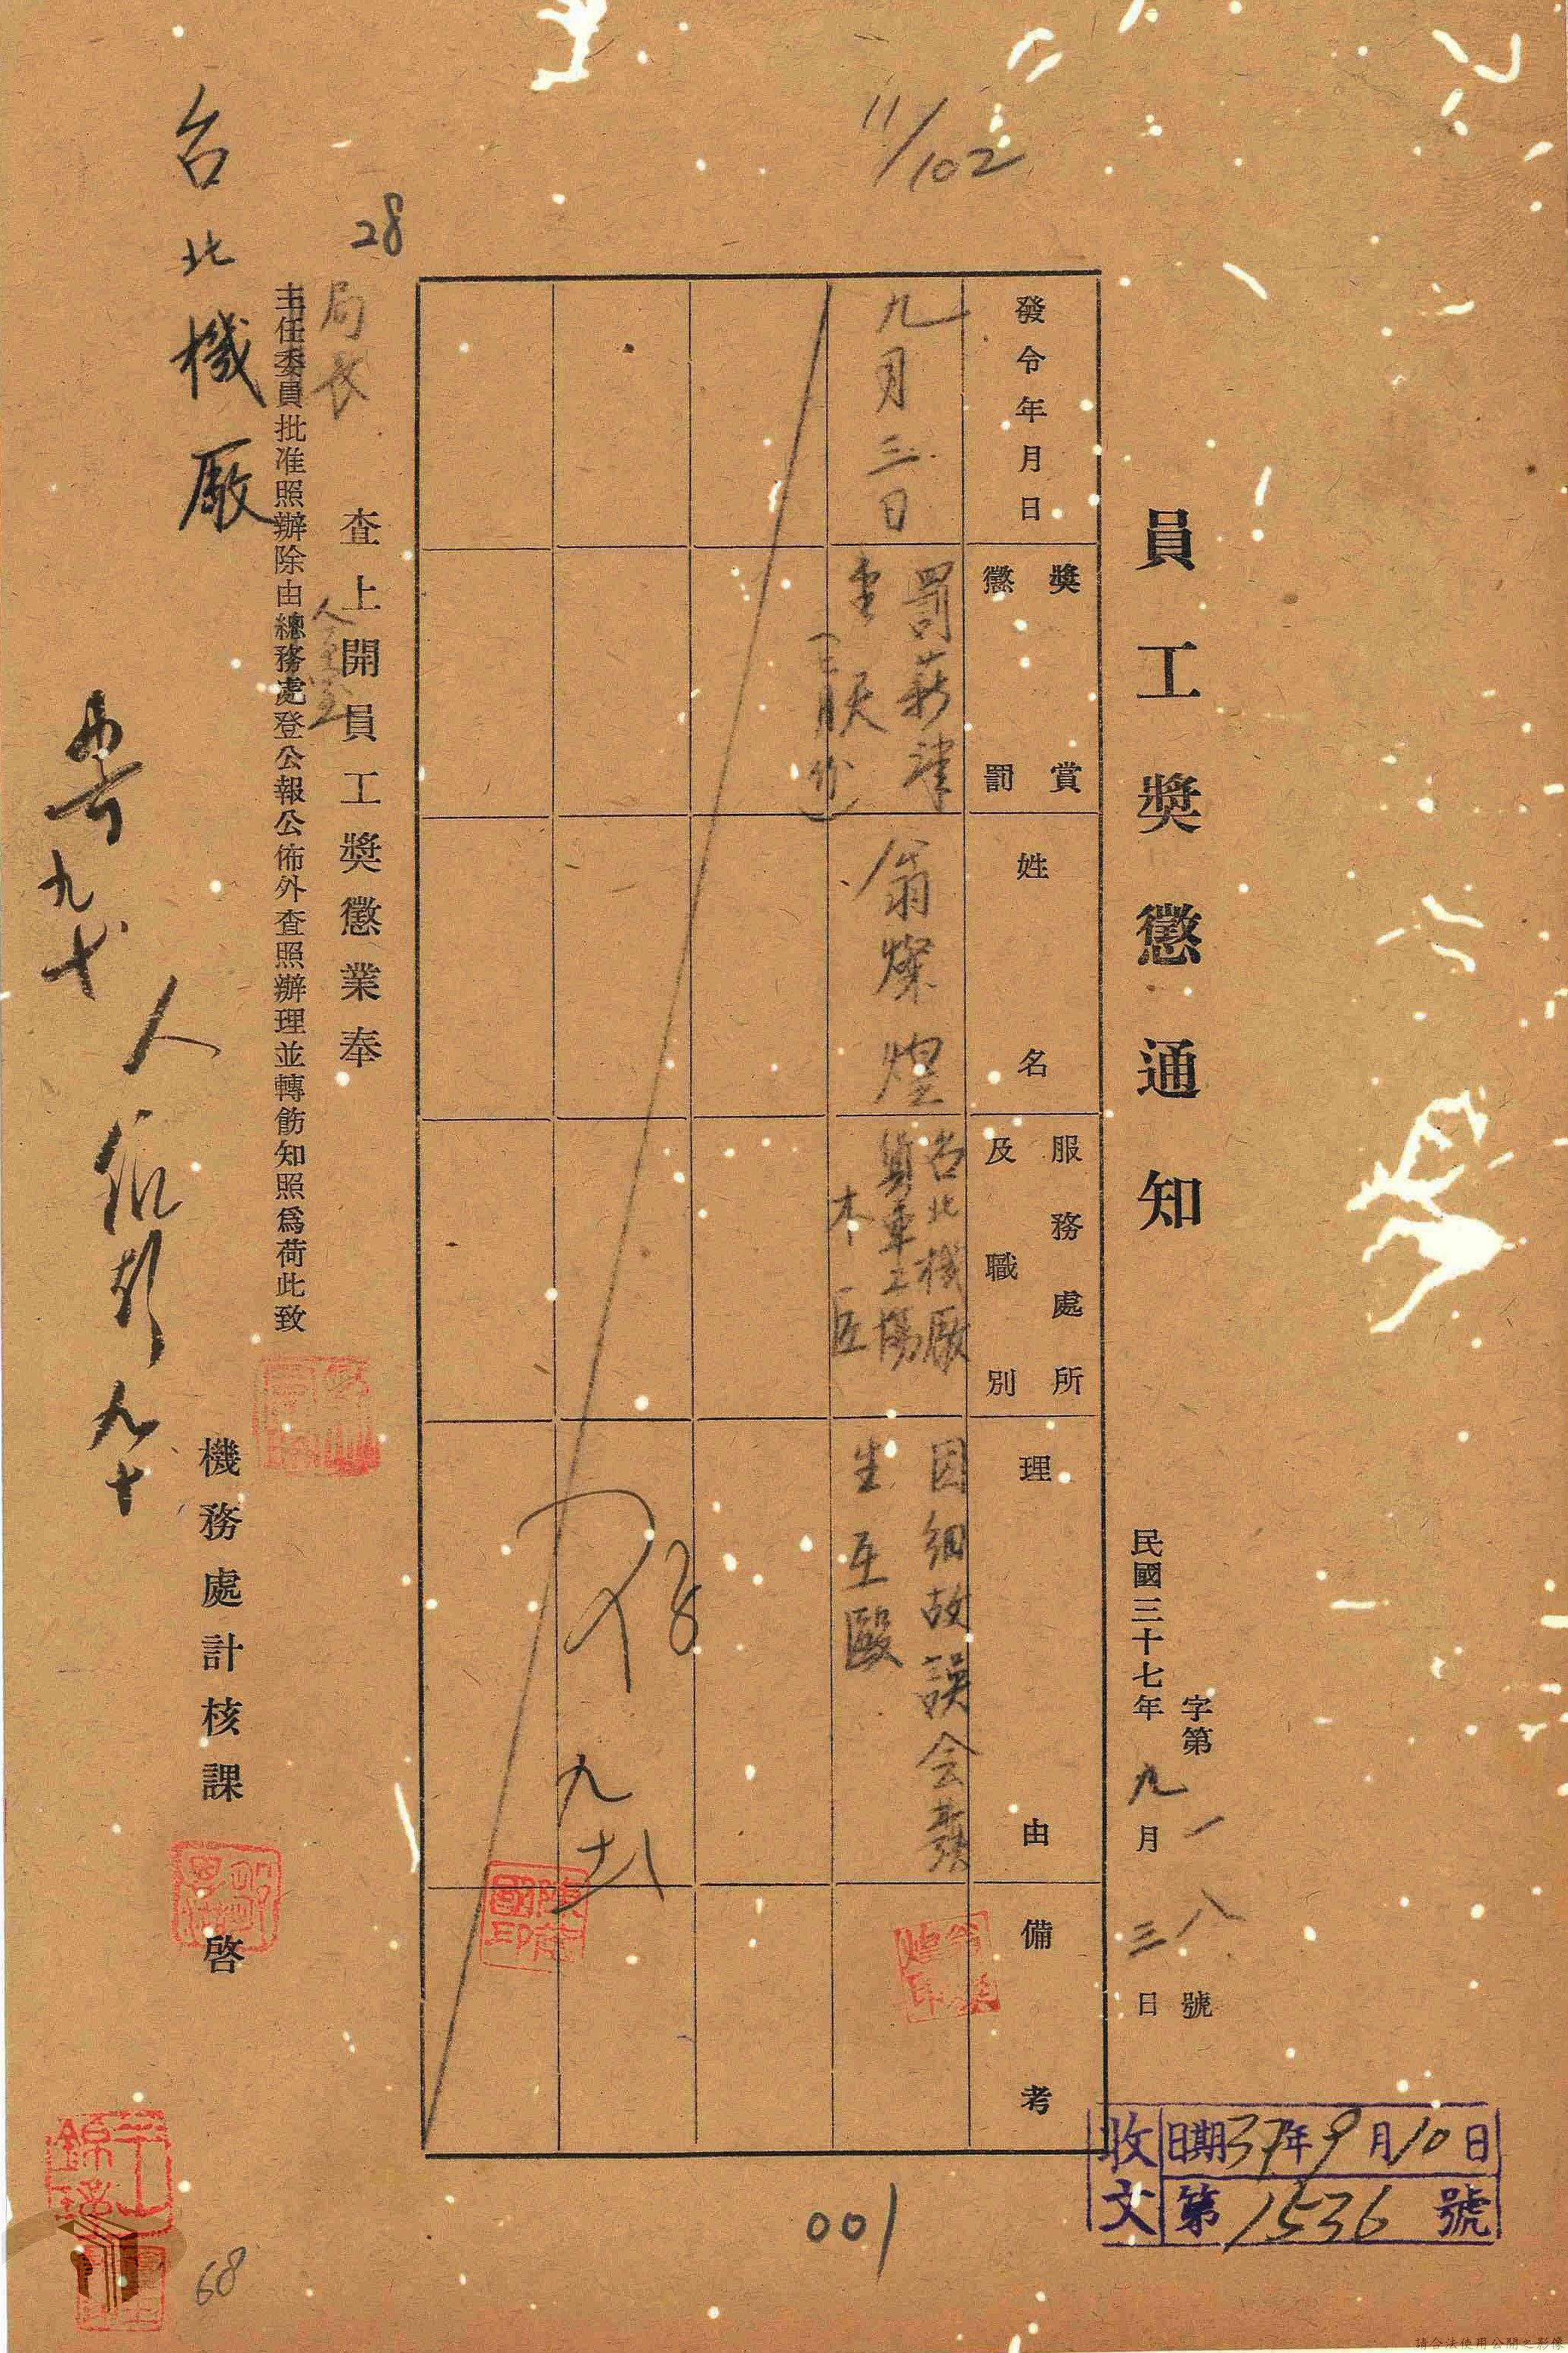 員工獎懲通知
字第一八號
民國三十七年九月三日
收文
日期37年9月10日
第1536號
11/102
發令年月日
獎賞
懲罰
姓名
服務處所
及職別
理由
備考
九月三日
罰薪津
壹天
翁燦煌
台北機廠
貨車工場
木匠
因細故誤会發
生互毆
九
十八
28
查上開員工獎懲業奉
局長
主任委員批准照辦除由總務處登公報公佈外查照辦理並轉飭知照為荷此致
人事室
台北機廠
機務處計核課
啓
九十
人
九十
001
68
請合法使用公開之影像